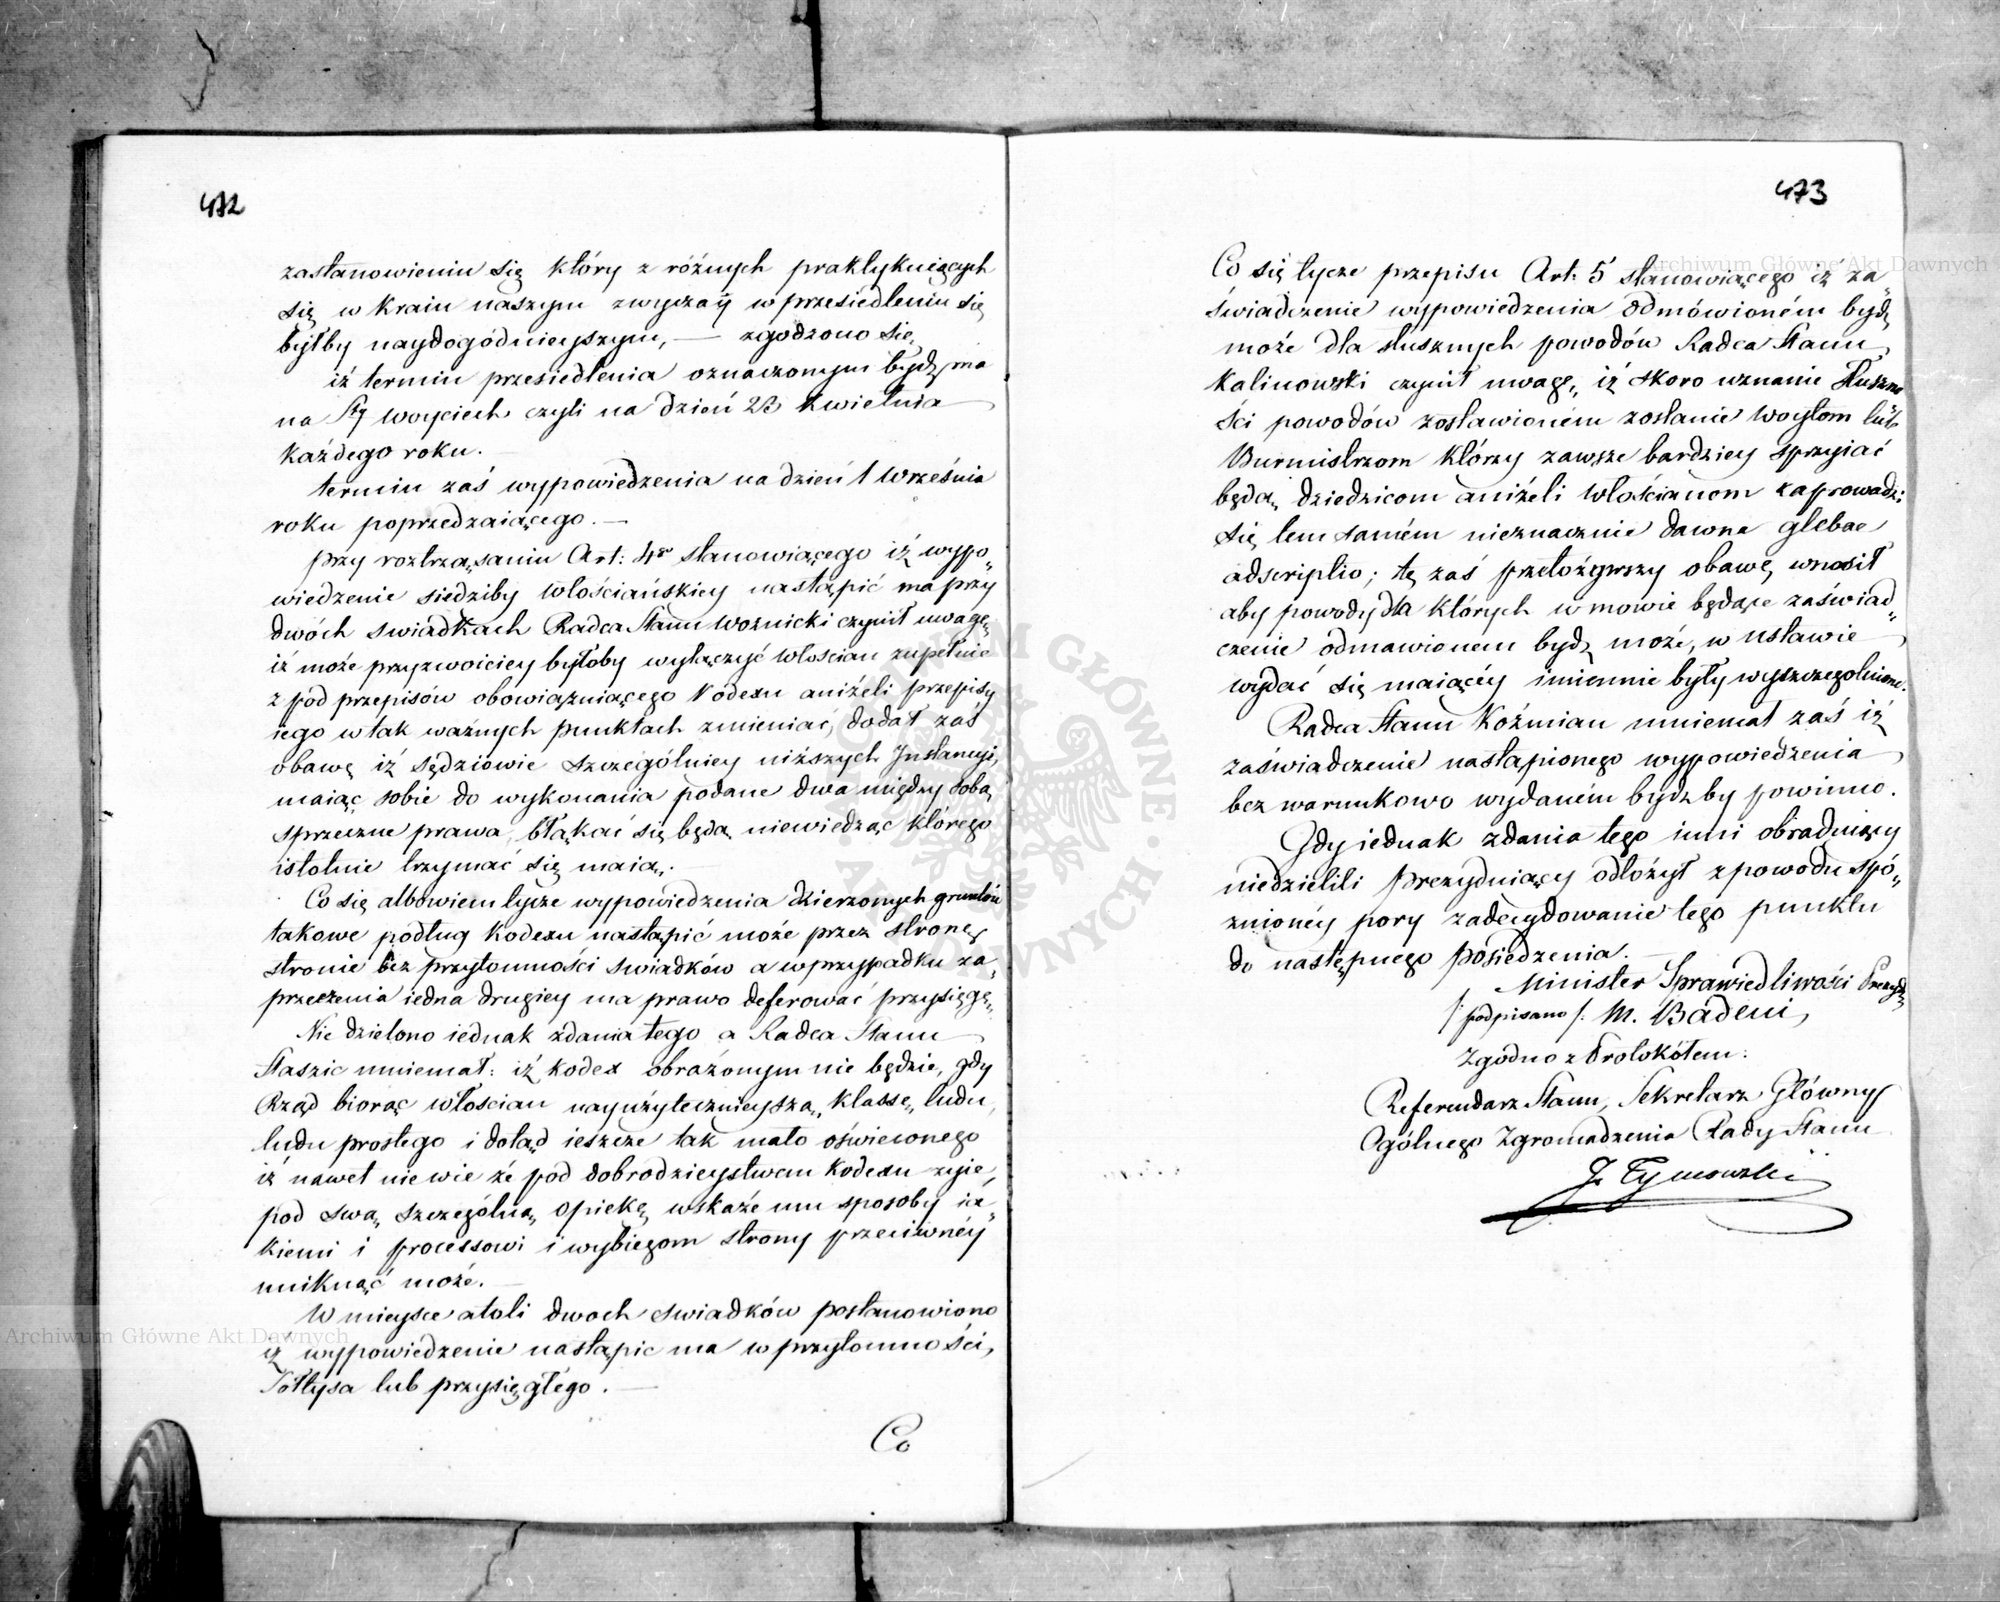 472
zastanowieniu się który z różnych praktykuiących
się w Kraiu naszym zwyczaÿ w przesiedleniu się
byłby naydogódnieyszym, — zgodzono się,
iż termin przesiedlenia oznaczonym bydź ma
na Sty Woyciech czyli na dzień 23 Kwietnia
każdego roku. —
termin zaś wypowiedzenia na dzień 1 Września
roku poprzedzaiącego. —
przy roztrząsaniu Art: 4go stanowiącego iż wypo„
wiedzenie siedziby Włościańskiey nastąpić ma przy
dwóch swiadkach Radca Stanu Woznicki czynił uwagę,
iż może przyzwoiciey byłoby wyłączyć Włoscian zupełnie
z pod przepisów obowiązuiącego Kodexu aniżeli przepisy
iego w tak ważnych punktach zmieniać, dodał zaś
obawę iż Sędziowie szczególniey niższych Instancyi,
maiąc sobie do wykonania podane dwa między sobą
sprzeczne prawa, błąkać się będą niewiedząc którego
istotnie trzymać się maią.
Co się albowiem tycze wypowiedzenia dzierzonych gruntów
takowe podług Kodexu nastąpić może przez stronę
stronie bez przytomności swiadków a w przypadku za„
przeczenia iedna drugiey ma prawo deferować przysięgę.
Nie dzielono iednak zdania tego a Radca Stanu
Staszic mniemał: iż Kodex obrażonym nie będzie, gdy
Rząd biorąc Włoscian nayużytecznieyszą, Klassę, ludu,
ludu prostego i dotąd ieszcze tak mało oświeconego
iż nawet nie wie że pod dobrodzieystwem Kodexu zyie,
pod swą, szczególną, opiekę wskaże mu sposoby ia„
kiemi i processowi i wybiegom strony przeciwnéy
uniknąć może. —
W mieysce atoli dwoch swiadków postanowiono
iż wypowiedzenie nastąpic ma w przytomności,
Sołtysa lub przysięgłego. —
Co
473
Co się tycze przepisu Art: 5 stanowiącego iż za„
świadczenie wypowiedzenia odmówioném bydź
może dla słusznych powodów Radca Stanu
Kalinowski czynił uwagę, iż skoro uznanie Słuszno„
ści powodów zostawioném zostanie Woytom lub
Burmistrzom którzy zawsze bardziey sprzyiać
będą, dziedzicom aniżeli Włościanom zaprowadzi
się tem samém nieznacznie dawna glebae
adscriptio; tę zaś przełożywszy obawę, wnosił
aby powody dla których w mowie będące zaświad„
czenie odmawianem bydź może, w Ustawie
wydać się maiącéy imiennie były wyszczególnione.
Radca Stanu Koźmian mniemał zaś iż
zaświadczenie nastąpionego wypowiedzenia
bez warunkowo wydaném bydź by powinno.
Gdy iednak zdania tego inni obraduiący
niedzielili Prezyduiący odłożył z powodu spó„
znionéy pory zadecydowanie tego punktu
do następnego posiedzenia. —
Minister Sprawiedliwości Prezyd:
/: podpisano /: M. Badeni,
Zgodno z Protokółem:
Referendarz Stanu, Sekretarz Główny
Ogólnego Zgromadzenia Rady Stanu
J. Tymowski